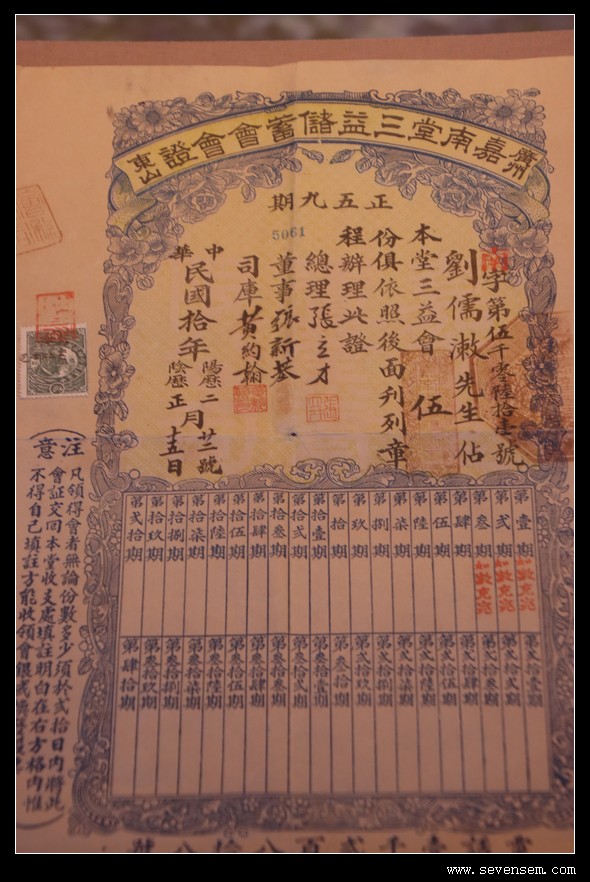 廣州嘉南堂三益儲蓄會會證東山
正五九期
5061
南字第伍千零陸拾壹號
劉儒漱先生佔
本堂三益會 伍
份俱依照後面刋列章
程辦理此證
總理張立才
董事張新基
司庫黃約翰
中華民國拾年
陽歷二月廿二號
陰歷正月十五日
第壹期 如數
第弍期 如數
第叁期 如數
第肆期
第伍期
第陸期
第柒期
第捌期
第玖期
第拾期
第拾壹期
第拾弍期
第拾叁期
第拾肆期
第拾伍期
第拾陸期
第拾柒期
第拾捌期
第拾玖期
第弍拾期
第弍拾壹期
第弍拾弍期
第弍拾叁期
第弍拾肆期
第弍拾伍期
第弍拾陸期
第弍拾柒期
第弍拾捌期
第弍拾玖期
第叁拾期
第叁拾壹期
第叁拾弍期
第叁拾叁期
第叁拾肆期
第叁拾伍期
第叁拾陸期
第叁拾柒期
第叁拾捌期
第叁拾玖期
第肆拾期
注意
凡領得會者無論份數多少須於弍拾日內將此
會証交回本堂收支處填註明白在右方格內惟
不得自己填註方能收領會銀
www.sevensem.com